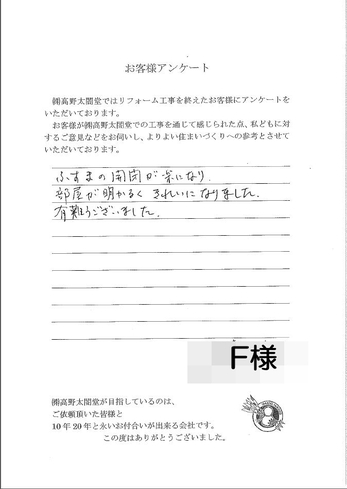 お客様アンケート
㈱高野太閤堂ではリフォーム工事を終えたお客様にアンケートを
いただいております。
お客様が㈱高野太閤堂での工事を通じて感じられた点、私どもに対
するご意見などをお伺いし、よりよい住まいづくりへの参考とさせて
いただいております。
ふすまの開閉が楽になり
部屋が明かるくきれいになりました。
有難うございました。
F様
㈱高野太閤堂が目指しているのは、
ご依頼頂いた皆様と
10年20年と永いお付合いが出来る会社です。
この度はありがとうございました。